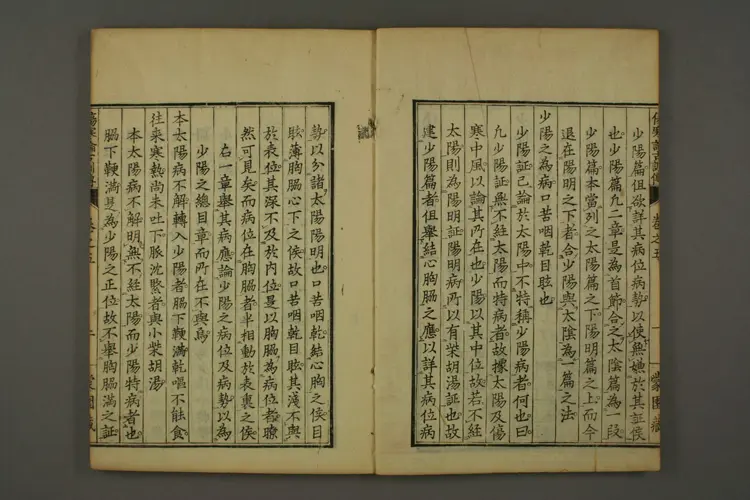 少陽篇但欲詳其病位病勢以使無嫌於其証侯
也少陽篇凡二章是為首節合之太陰篇為一段
少陽篇本當列之太陽篇之下陽明篇之上而今
退在陽明之下者合少陽與太陰為一篇之法
少陽之為病口苦咽乾目眩也
少陽証已論於太陽中不特稱少陽病者何也曰
凡少陽証無不經太陽而特病者故據太陽及傷
寒中風以論其所在也少陽以其中位故若不經
太陽則為陽明証陽明病所以有柴胡湯証也故
建少陽篇者但舉結心胸脇之應以詳其病位病
勢以分諸太陽陽明也口苦咽乾結心胸之侯目
眩薄胸脇心下之侯故口苦咽乾目眩其淺不與
於表位其深不及於內位是以胸脇為病位者瞭
然可見矣而病位在胸脇者半相動於表裏之侯
右一章舉其病應論少陽之病位及病勢以為
少陽之總目章而所在不與焉
本太陽病不解轉入少陽者脇下鞕滿乾嘔不能食
往來寒熱尚未吐下脈沈緊者與小柴胡湯
本太陽病不解明無不經太陽而少陽特病者也
脇下鞕滿是為少陽之正位故不舉胸脇滿之証